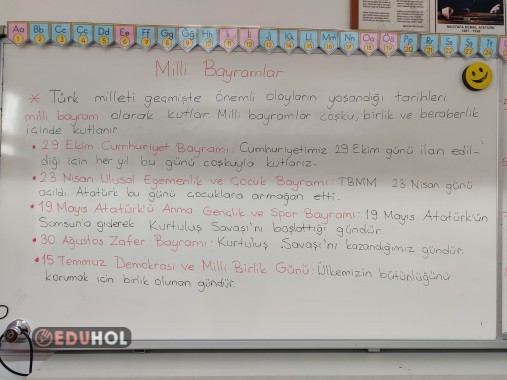 Aa Bb Cc Çç Dd Ee Ff Gg Ğğ Hh Iı İi Jj Kk Ll Mm Nn Oo Öö Pp Rr Ss Şş Tt
MUSTAFA KEMAL ATATÜRK
1881 - 1938
Milli Bayramlar
* Türk milleti geçmişte önemli olayların yaşandığı tarihleri
milli bayram olarak kutlar. Milli bayramlar coşku, birlik ve beraberlik
içinde kutlanır.
• 29 Ekim Cumhuriyet Bayramı: Cumhuriyetimiz 29 Ekim günü ilan edil-
diği için her yıl bu günü coşkuyla kutlarız.
• 23 Nisan Ulusal Egemenlik ve Çocuk Bayramı: TBMM 23 Nisan günü
açıldı. Atatürk bu günü çocuklara armağan etti.
• 19 Mayıs Atatürk'ü Anma Gençlik ve Spor Bayramı: 19 Mayıs Atatürk'ün
Samsun'a giderek Kurtuluş Savaşı'nı başlattığı gündür.
• 30 Ağustos Zafer Bayramı: Kurtuluş Savaşı'nı kazandığımız gündür.
• 15 Temmuz Demokrasi ve Milli Birlik Günü: Ülkemizin bütünlüğünü
korumak için birlik olunan gündür.
EDUHOL